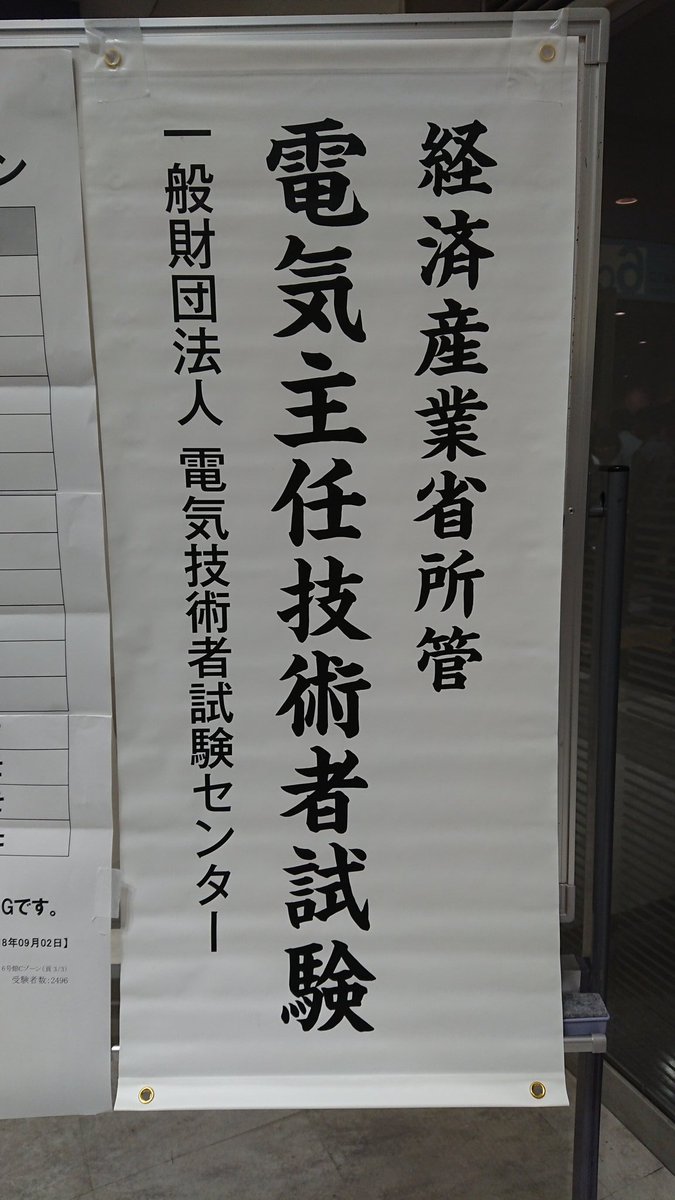 経済産業省所管
電気主任技術者試験
一般財団法人 電気技術者試験センター
ン
Gです。
8年09月02日】
6号館Cゾーン(頁3/3)
受験者数:2496